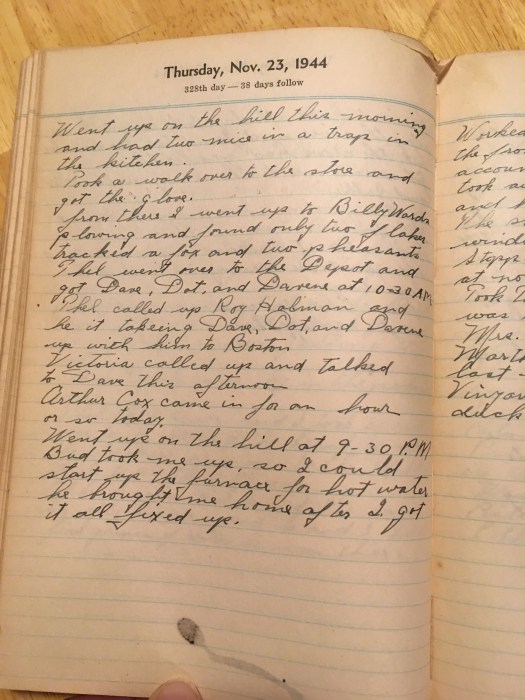 Thursday, Nov. 23, 1944
328th day — 38 days follow
Went up on the hill this morning
and had two mice in a trap in
the kitchen.
Took a walk over to the store and
got the glove.
from there I went up to Billy Wards
plowing and found only two
tracked a fox and two pheasants
Phel went over to the Depot and
got Dave, Dot, and Davene at 10-30 AM
Phel called up Roy Holman and
he it takeing Dave, Dot, and Davene
up with him to Boston
Victoria called up and talked
to Dave this afternoon
Arthur Cox came in for an hour
or so today.
Went up on the hill at 9-30 P.M
Bud took me up, so I could
start up the furnace for hot water
he brought me home after I got
it all fixed up.
Worked
the
took
and
at no
Took
was
Mrs.
last
duck